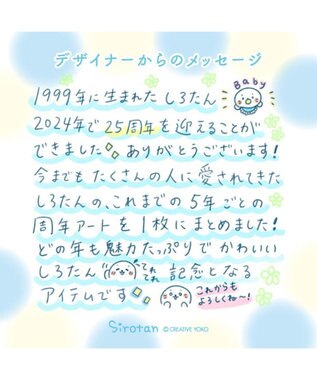 デザイナーからのメッセージ
Baby
1999年に生まれたしろたん
2024年で25周年を迎えることが
できました ありがとうございます!
今までもたくさんの人に愛されてきた
しろたんの、これまでの5年ごとの
周年アートを1枚にまとめました!
どの年も魅力たっぷりでかわいい
しろたん てれてれ 記念となる
アイテムです
これからも
よろしくね〜!
Sirotan ©CREATIVE YOKO